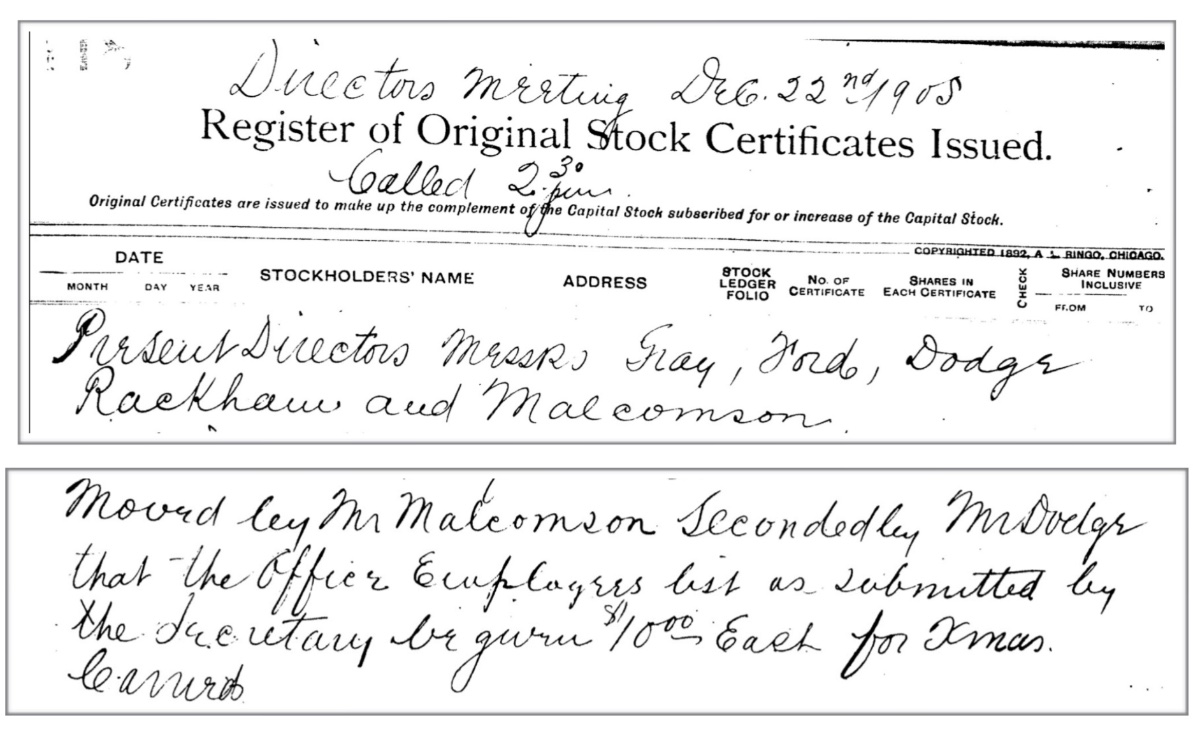 Directors Meeting Dec. 22nd/1905
Register of Original Stock Certificates Issued.
Called 2.30 pm.
Original Certificates are issued to make up the complement of the Capital Stock subscribed for or increase of the Capital Stock.
COPYRIGHTED 1892, A. L. RINGO, CHICAGO.
DATE STOCKHOLDERS' NAME ADDRESS STOCK LEDGER FOLIO No. OF CERTIFICATE SHARES IN EACH CERTIFICATE CHECK SHARE NUMBERS INCLUSIVE
MONTH DAY YEAR FROM TO
Present Directors Messrs Gray, Ford, Dodge
Rackham and Malcomson.
Moved by Mr Malcomson Seconded by Mr Dodge
that the Office Employees list as submitted by
the Secretary be given $10.00 Each for Xmas.
Carried